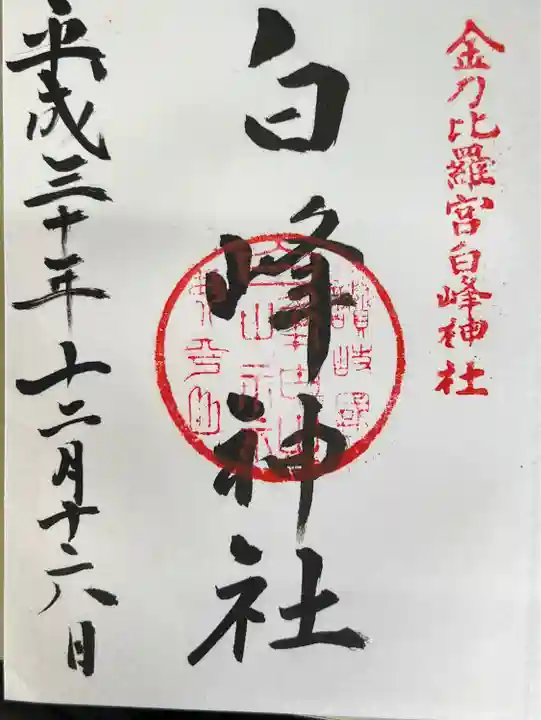 金刀比羅宮白峰神社
白峰神社
讃岐国
平成三十年十二月十六日